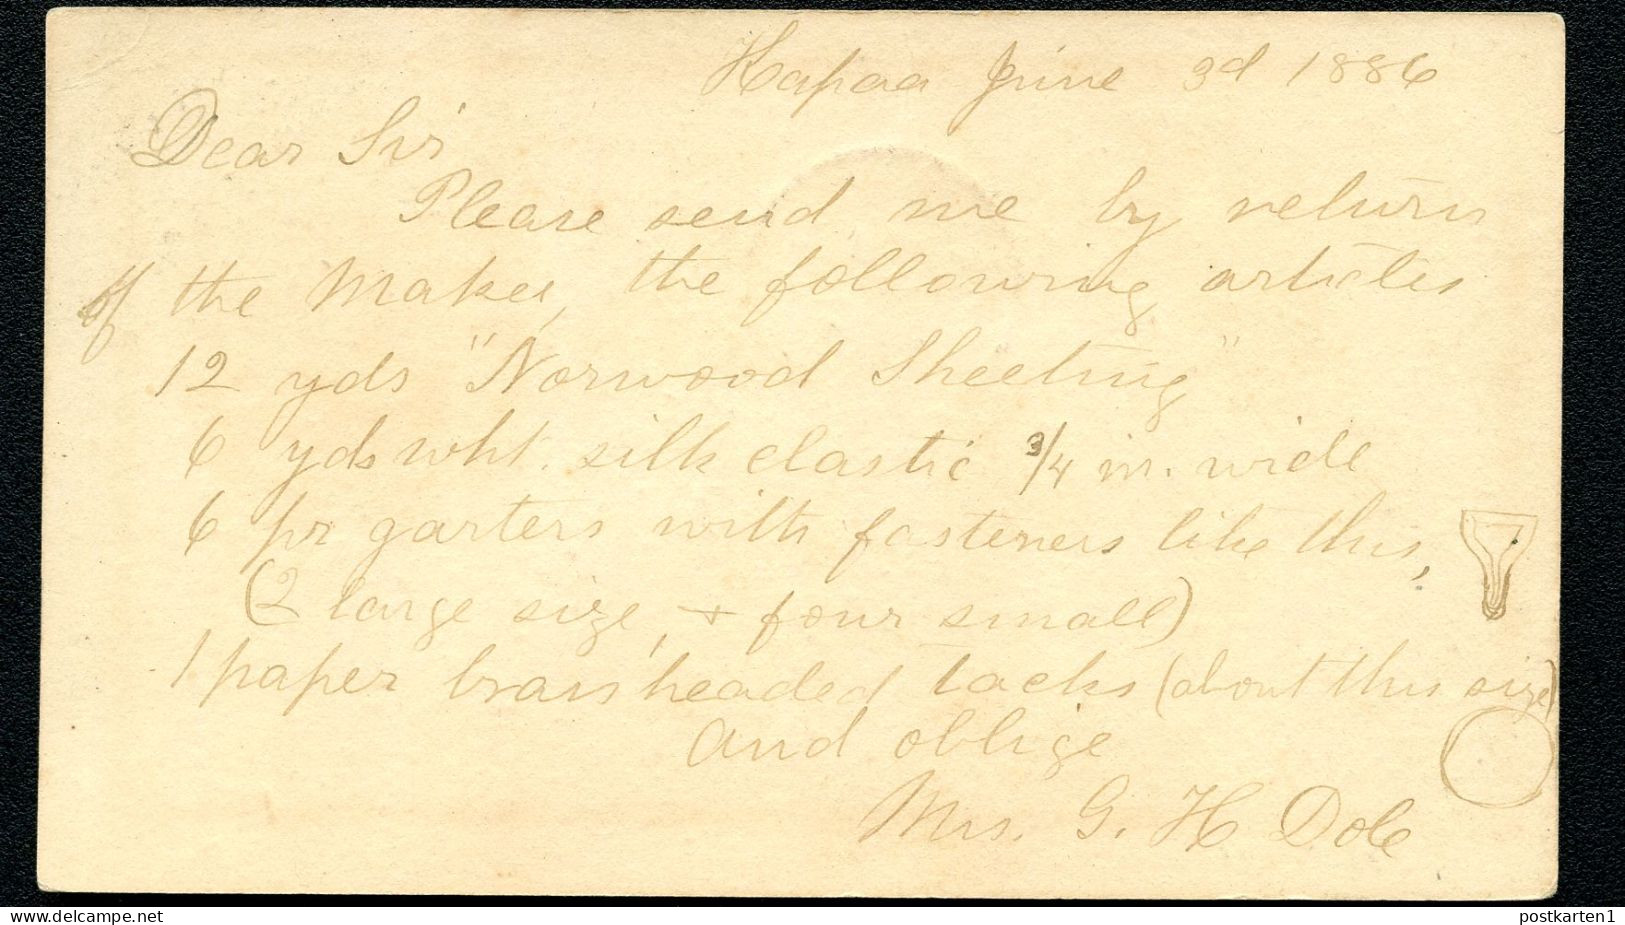 Kapaa June 3d 1886
Dear Sir
Please send me by return
of the Makee, the following articles
12 yds "Norwood Sheeting"
6 yds wht. silk elastic 3/4 in. wide
6 pr garters with fasteners like this,
(2 large size, + four small)
1 paper brass headed tacks (about this size)
and oblige
Mrs. G. H Dole
www.delcampe.net
postkarten1